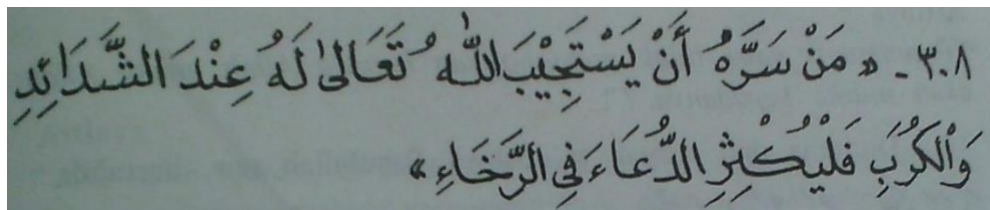 ٣٠٨ - « مَنْ سَرَّهُ أَنْ يَسْتَجِيْبَ اللهُ تَعَالىٰ لَهُ عِنْدَ الشَّدَائِدِ
وَالْكُرَبِ فَلْيُكْثِرِ الدُّعَاءَ فِى الرَّخَاءِ »